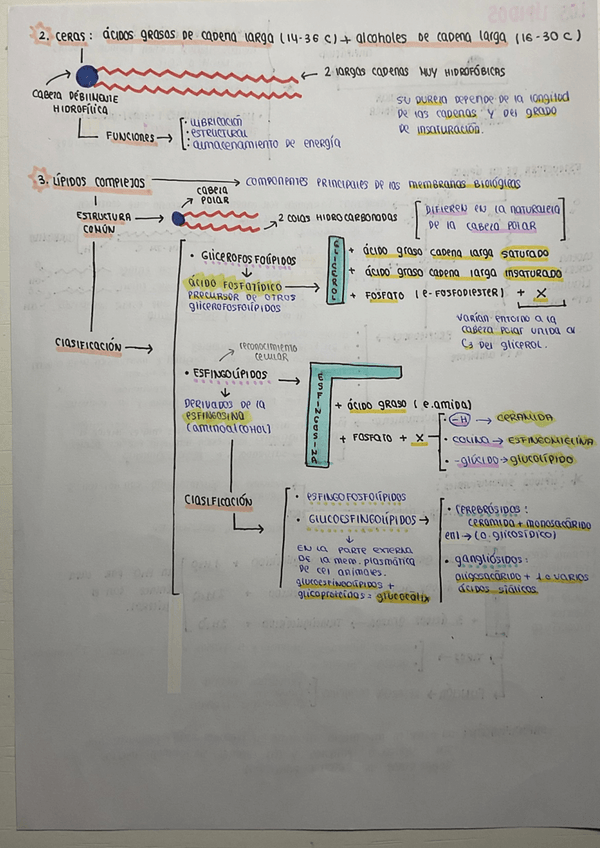 2. CERAS: ÁCIDOS GRASOS DE CADENA LARGA (14-36 C) + ALCOHOLES DE CADENA LARGA (16-30 C)
2 LARGAS CADENAS MUY HIDROFÓBICAS
CABEZA DÉBILMENTE
HIDROFÍLICA
SU DUREZA DEPENDE DE LA LONGITUD
DE LAS CADENAS Y DEL GRADO
DE INSATURACIÓN.
FUNCIONES
· LUBRICACIÓN
· ESTRUCTURAL
· ALMACENAMIENTO DE ENERGÍA
3. LÍPIDOS COMPLEJOS → COMPONENTES PRINCIPALES DE LAS MEMBRANAS BIOLÓGICAS
CABEZA
POLAR
ESTRUCTURA
COMÚN
2 COLAS HIDROCARBONADAS
DIFIEREN EN LA NATURALEZA
DE LA CABEZA POLAR
CLASIFICACIÓN
· GLICEROFOSFOLÍPIDOS
ÁCIDO FOSFATÍDICO
PRECURSOR DE OTROS
GLICEROFOSFOLÍPIDOS
GLICEROL
+ ÁCIDO GRASO CADENA LARGA SATURADO
+ ÁCIDO GRASO CADENA LARGA INSATURADO
+ FOSFATO (e-FOSFODIESTER) + X
VARÍAN ENTORNO A LA
CABEZA POLAR UNIDA AL
C3 DEL GLICEROL.
reconocimiento
celular
· ESFINGOLÍPIDOS
DERIVADOS DE LA
ESFINGOSINA
(AMINOALCOHOL)
ESFINGOSINA
+ ÁCIDO GRASO (e.amida)
+ FOSFATO + X
· -H → CERAMIDA
· COLINA → ESFINGOMIELINA
· -GLÚCIDO → GLUCOLÍPIDO
CLASIFICACIÓN
· ESFINGOFOSFOLÍPIDOS
· GLUCOESFINGOLÍPIDOS →
EN LA PARTE EXTERNA
DE LA MEM. PLASMÁTICA
DE CEL ANIMALES.
GLUCOESFINGOLÍPIDOS +
GLICOPROTEÍDAS = GLUCOCÁLIX
· CEREBRÓSIDOS:
CERAMIDA + MONOSACÁRIDO
enl → (O.GLICOSÍDICO)
· GANGLIÓSIDOS:
OLIGOSACÁRIDO + 1 O VARIOS
ÁCIDOS SIÁLICOS.